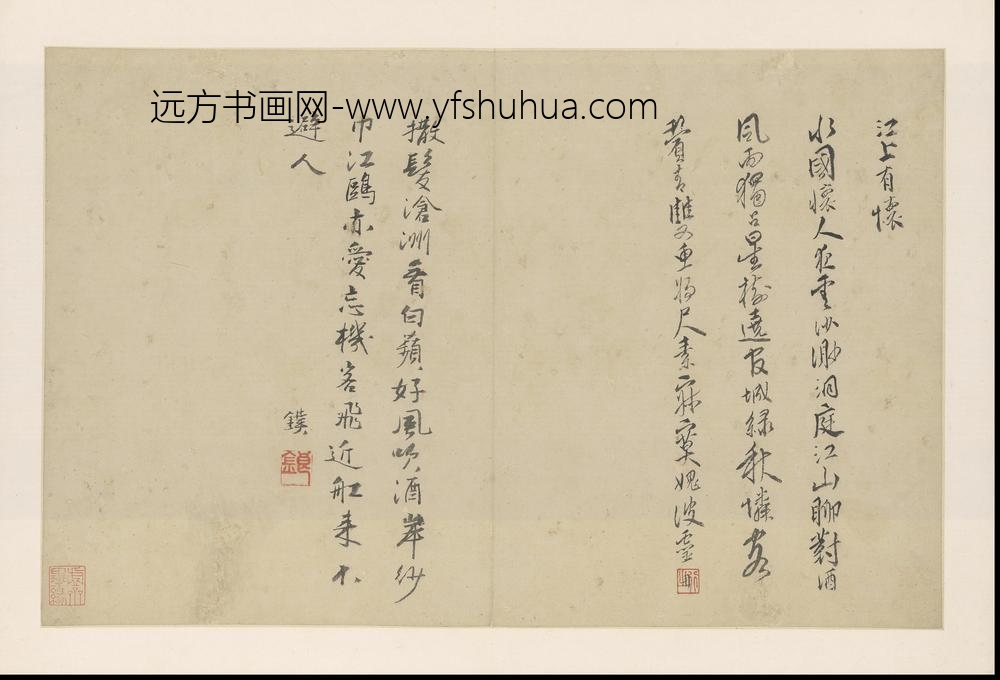 远方书画网-www.yfshuhua.com
江上有懷
水國懷人夜雲沙渺洞庭江山聊對酒
風雨獨占星樹遶官城綠秋憐客
鬢青雙魚將尺素寐寞媿波靈
撒髮滄洲看白蘋好風吹酒岸紗
巾江鷗亦愛忘機客飛近舡來不
避人
鏷